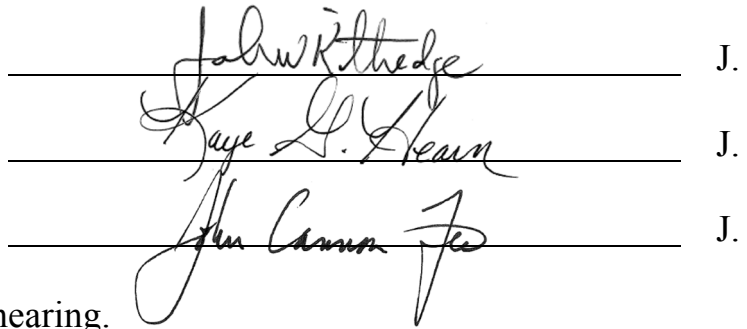 John W Kittredge J.
Kaye G. Hearn J.
John Cannon Few J.
hearing.